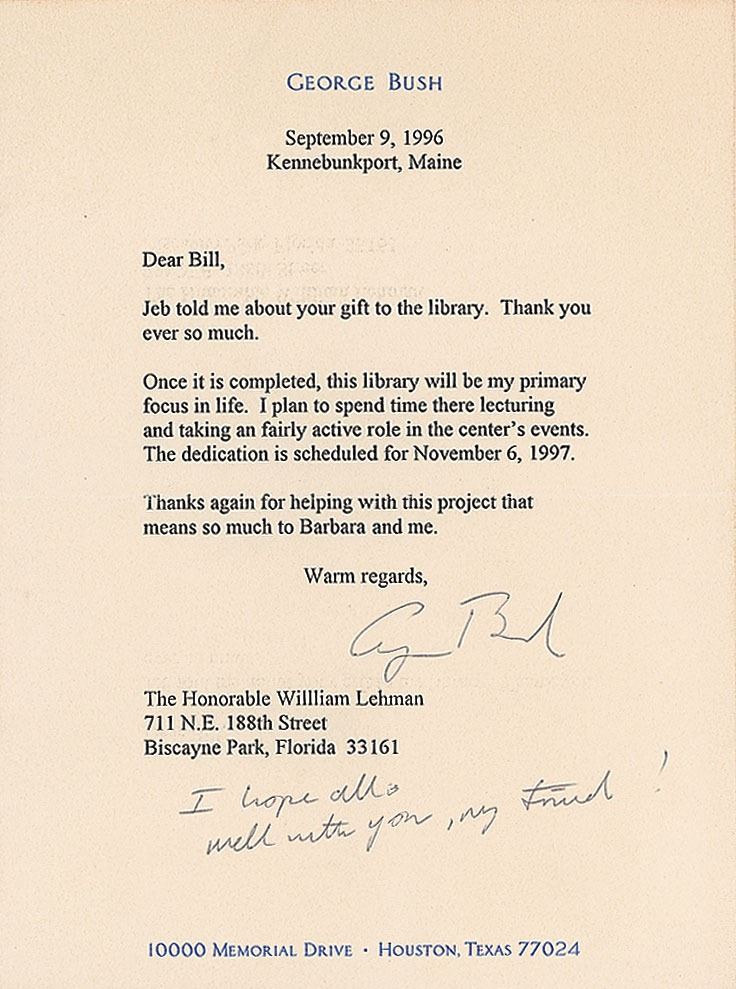 GEORGE BUSH
September 9, 1996
Kennebunkport, Maine
Dear Bill,
Jeb told me about your gift to the library.  Thank you
ever so much.
Once it is completed, this library will be my primary
focus in life.  I plan to spend time there lecturing
and taking an fairly active role in the center's events.
The dedication is scheduled for November 6, 1997.
Thanks again for helping with this project that
means so much to Barbara and me.
Warm regards,
G Bush
The Honorable Willliam Lehman
711 N.E. 188th Street
Biscayne Park, Florida  33161
I hope all's
well with you, my friend!
10000 MEMORIAL DRIVE · HOUSTON, TEXAS 77024